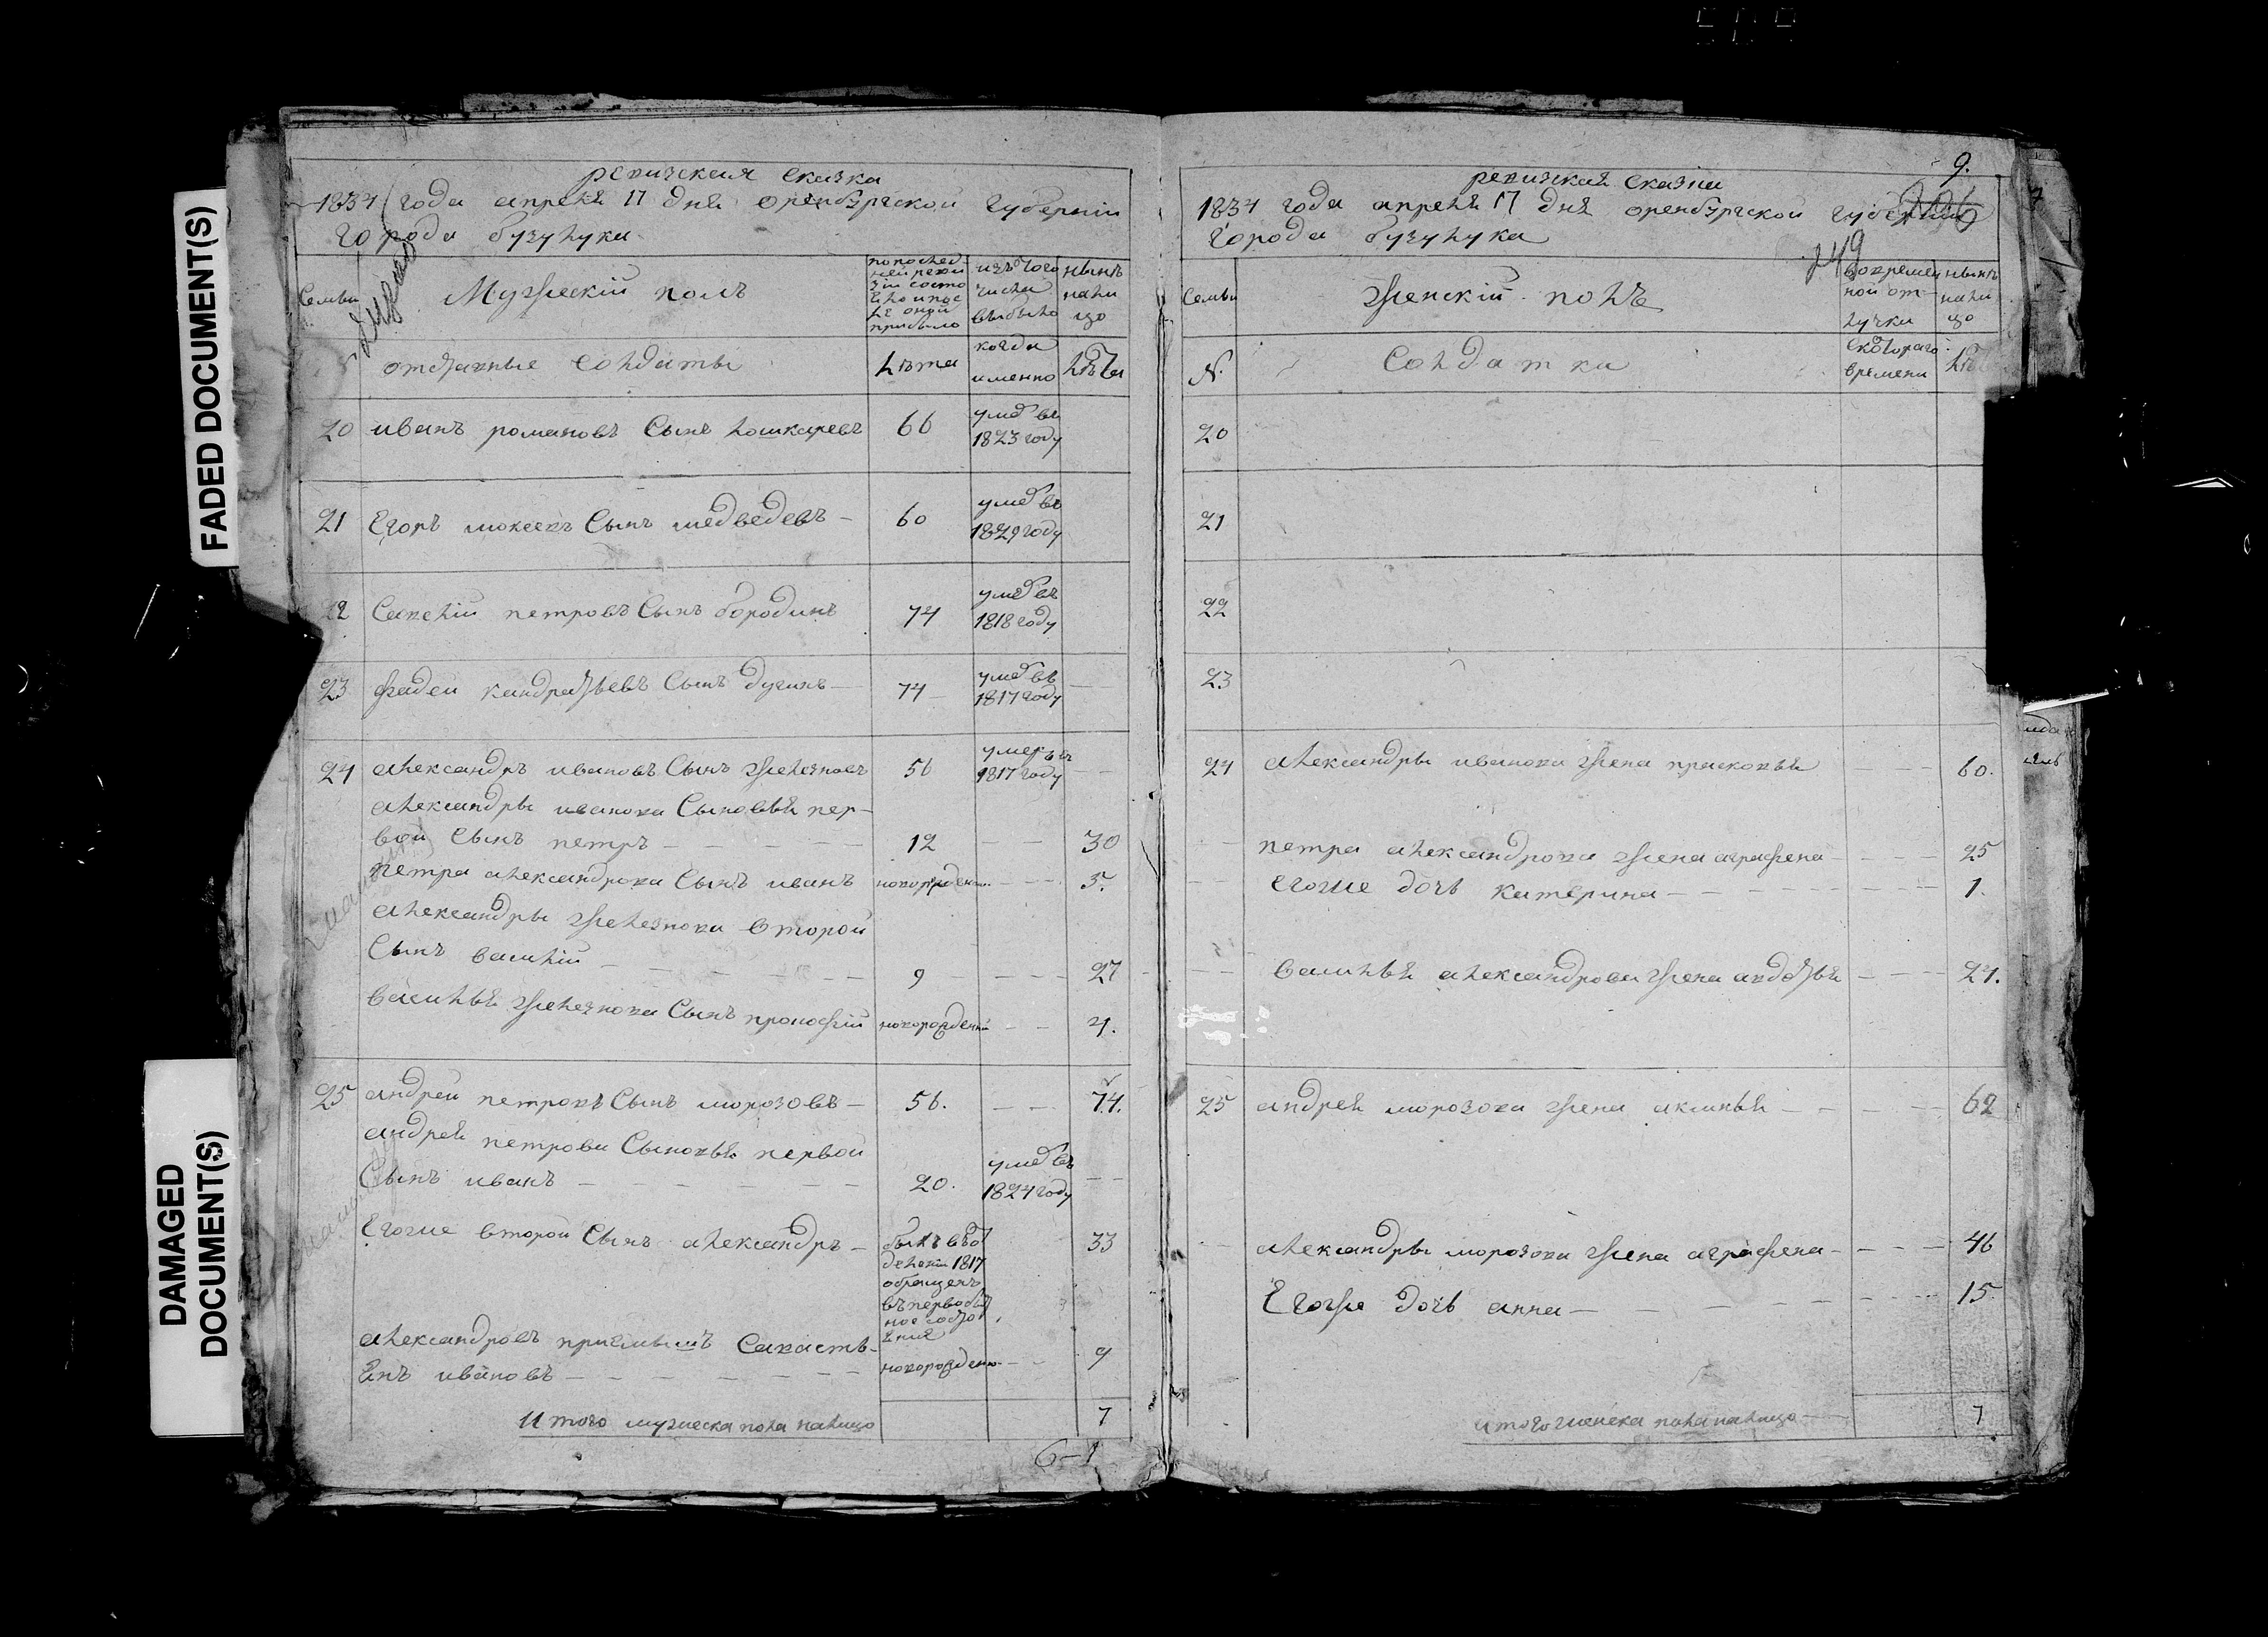 FADED DOCUMENT(S)
DAMAGED DOCUMENT(S)
ревизская сказка
1834 года апреля 17 дня оренбургской губернiи
города бузулука
Семьи
Мужескiй полъ
по послед-
ней реви
зiи состо
яло и пос
ле оной
прибыло
изъ того
числа
выбыло
нынѣ
нали
цо
отставные Солдаты
лѣта
когда
именно
лѣта
20 иванъ романовъ Сынъ лошкаревъ 66 умер въ
1823 году
21 Егоръ мокеевъ Сынъ медведевъ — 60 умер въ
1829 году
22 Савелiй петровъ Сынъ бородинъ 74 умер въ
1818 году
23 фадеи кандратьевъ Сынъ дугинъ — 74 умер въ
1817 году
24 александръ ивановъ Сынъ железновъ 56 умеръ въ
1817 году
александры иванова Сыновья пер-
вой Сынъ петръ — 12 — 30
петра александрова Сынъ иванъ новорожден — 5.
александры железнова второй
Сынъ василiй — 9 — 27
василья железнова Сынъ прокофiй новорожденный — 4.
25 андреи петровъ Сынъ морозовъ — 56. — 74.
андрея петрова Сыновья первой
Сынъ иванъ — 20. умер въ
1824 году
Егоже второй Сынъ александръ — 33
былъ въ от
делении 1817
обращенъ
въ первобыт
ное состо
янiе
александровъ приемышъ Савасть-
янъ ивановъ — новорожденно — 9
Итого мужеска пола налицо 7
6-1
9.
ревизкая сказка
1834 года апреля 17 дня оренбургской губернiи
города бузулука
249
Семьи
Женскiй полъ
во времен
ной от-
лучки
нынѣ
нали
цо
N.
Солдатки
с котораго
времени
лѣта
20
21
22
23
24 александры иванова жена прасковья — 60.
петра александрова жена аграфена — 25
егоже дочь катерина — 1.
василья александрова жена авдотья — 24.
25 андрея морозова жена акилина — 62
александры морозова жена аграфена — 46
Егоже дочь анна — 15
итого женска пола налицо 7